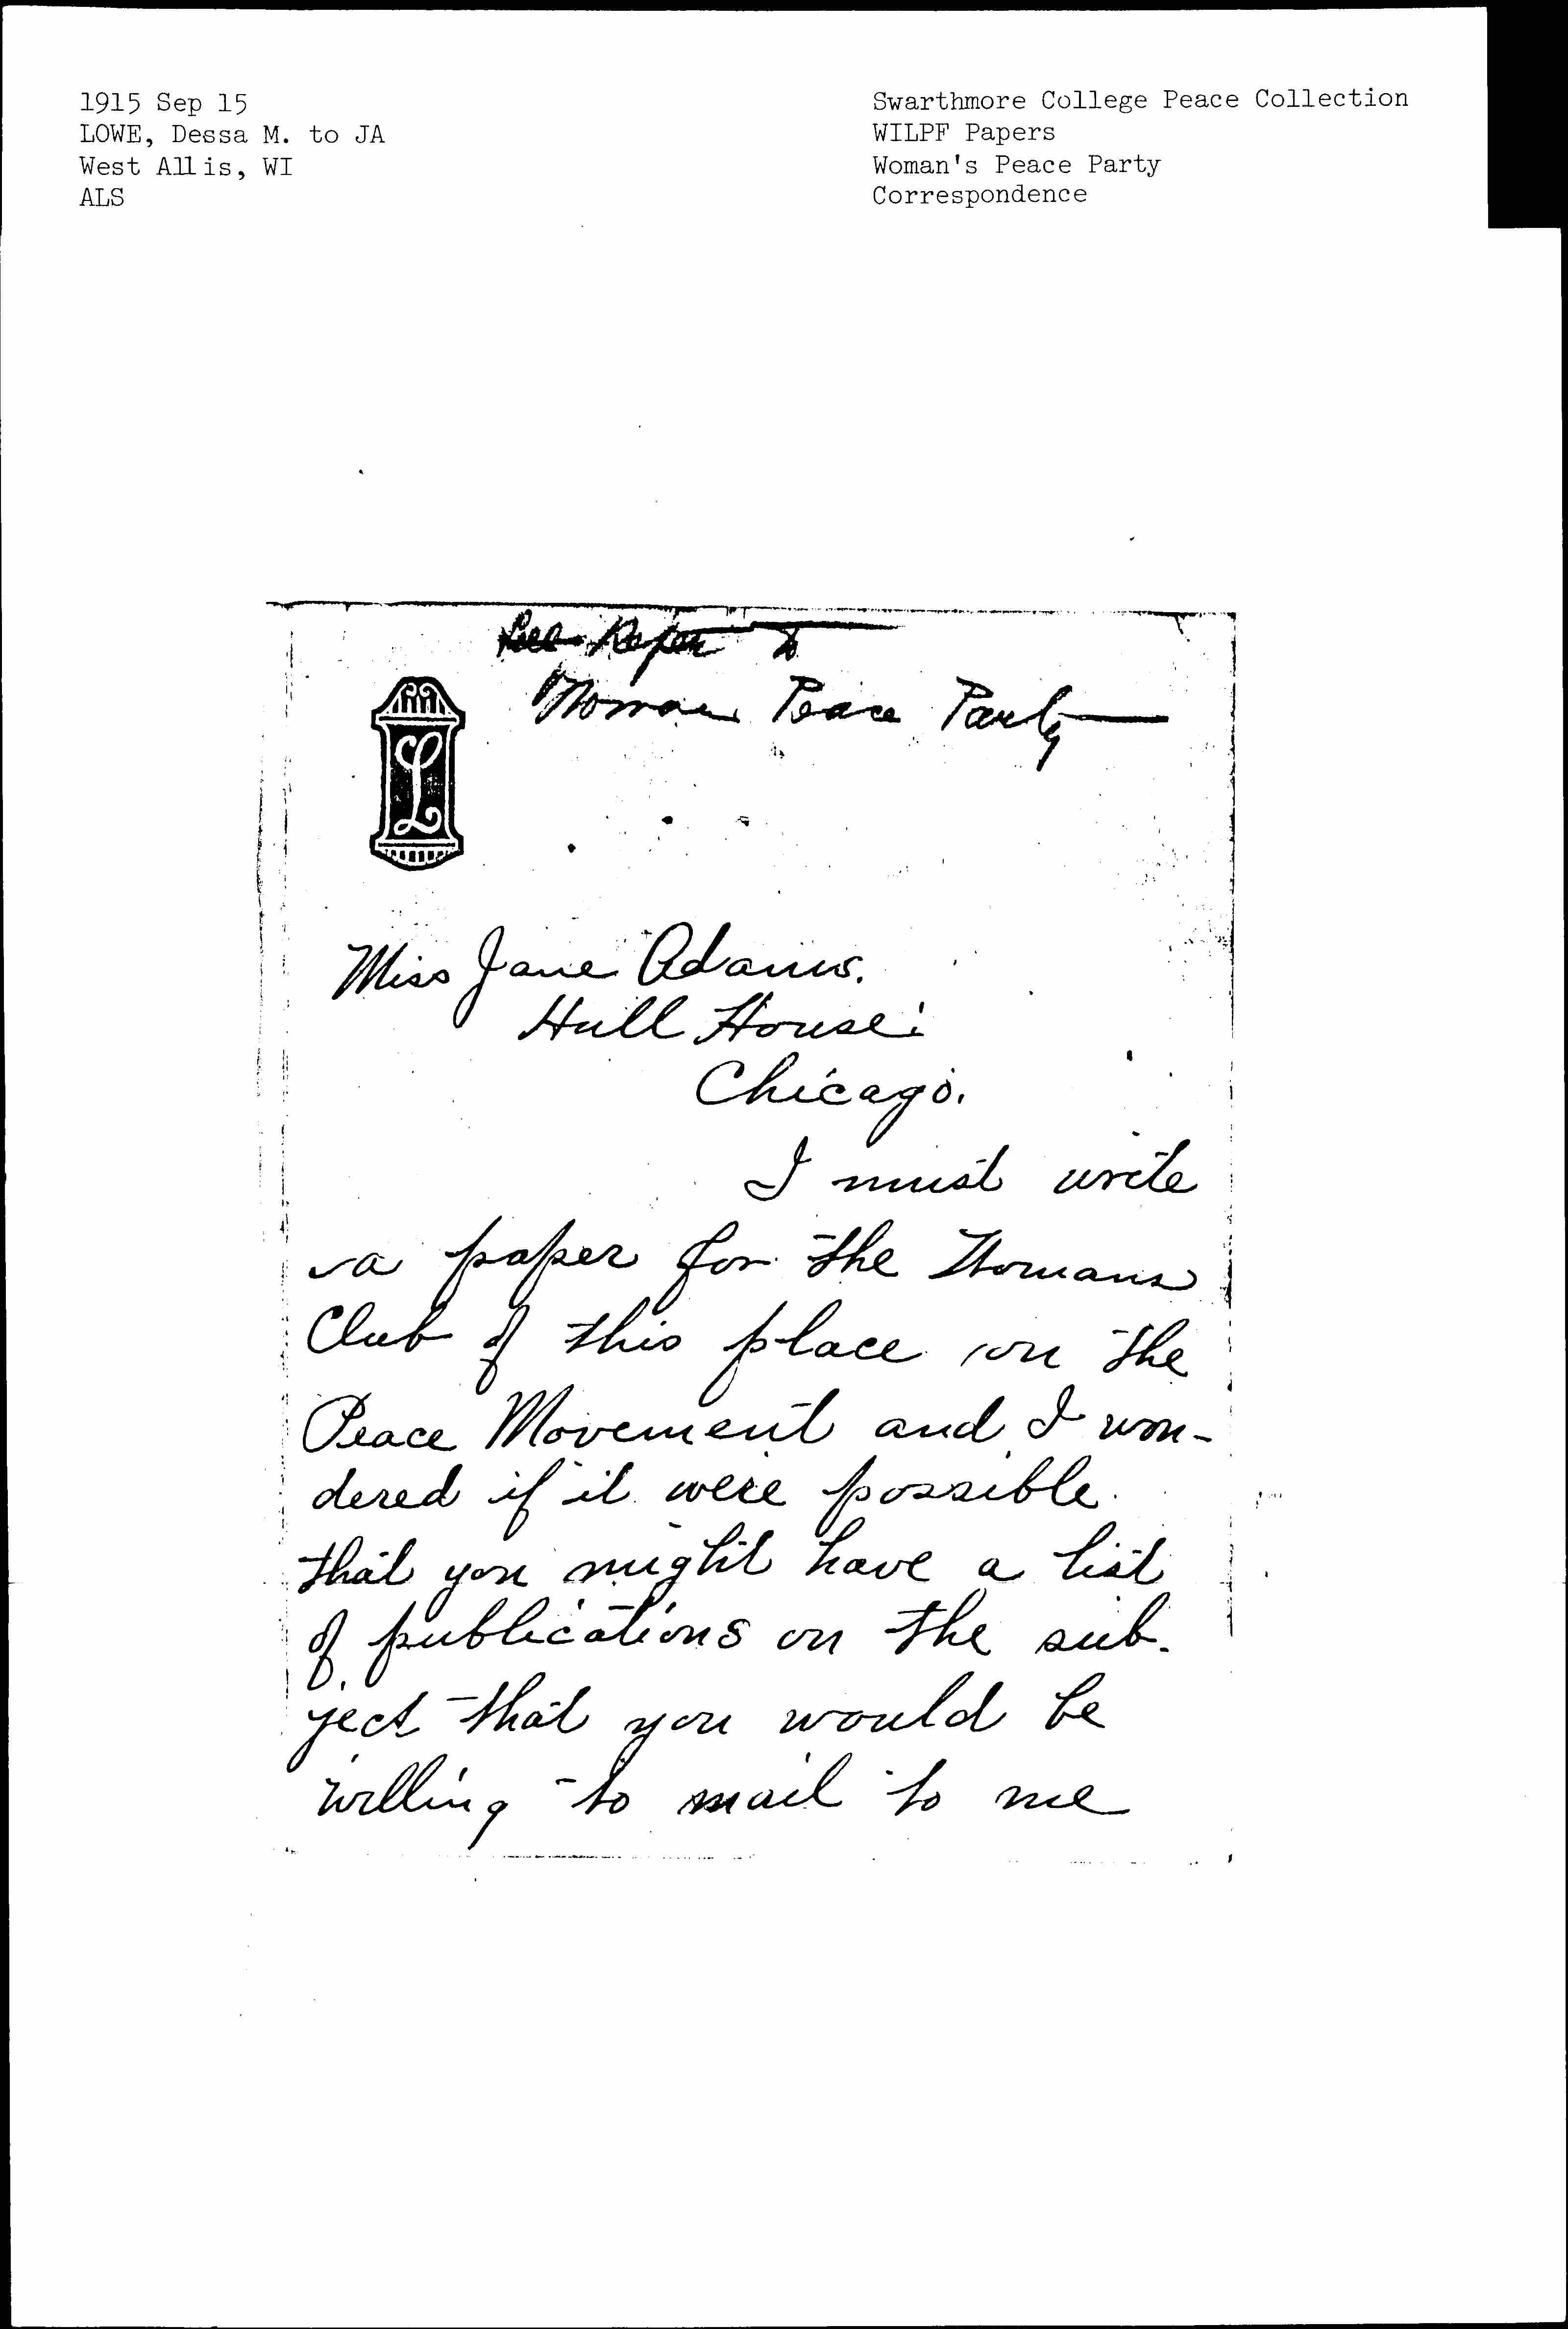 1915 Sep 15
LOWE, Dessa M. to JA
West Allis, WI
ALS
Swarthmore College Peace Collection
WILPF Papers
Woman's Peace Party
Correspondence
Refer to
Woman Peace Party
L
Miss Jane Adams.
Hull House:
Chicago.
I must write
a paper for the Womans
Club of this place on the
Peace Movement and I won-
dered if it were possible
that you might have a list
of publications on the sub-
ject that you would be
willing to mail to me